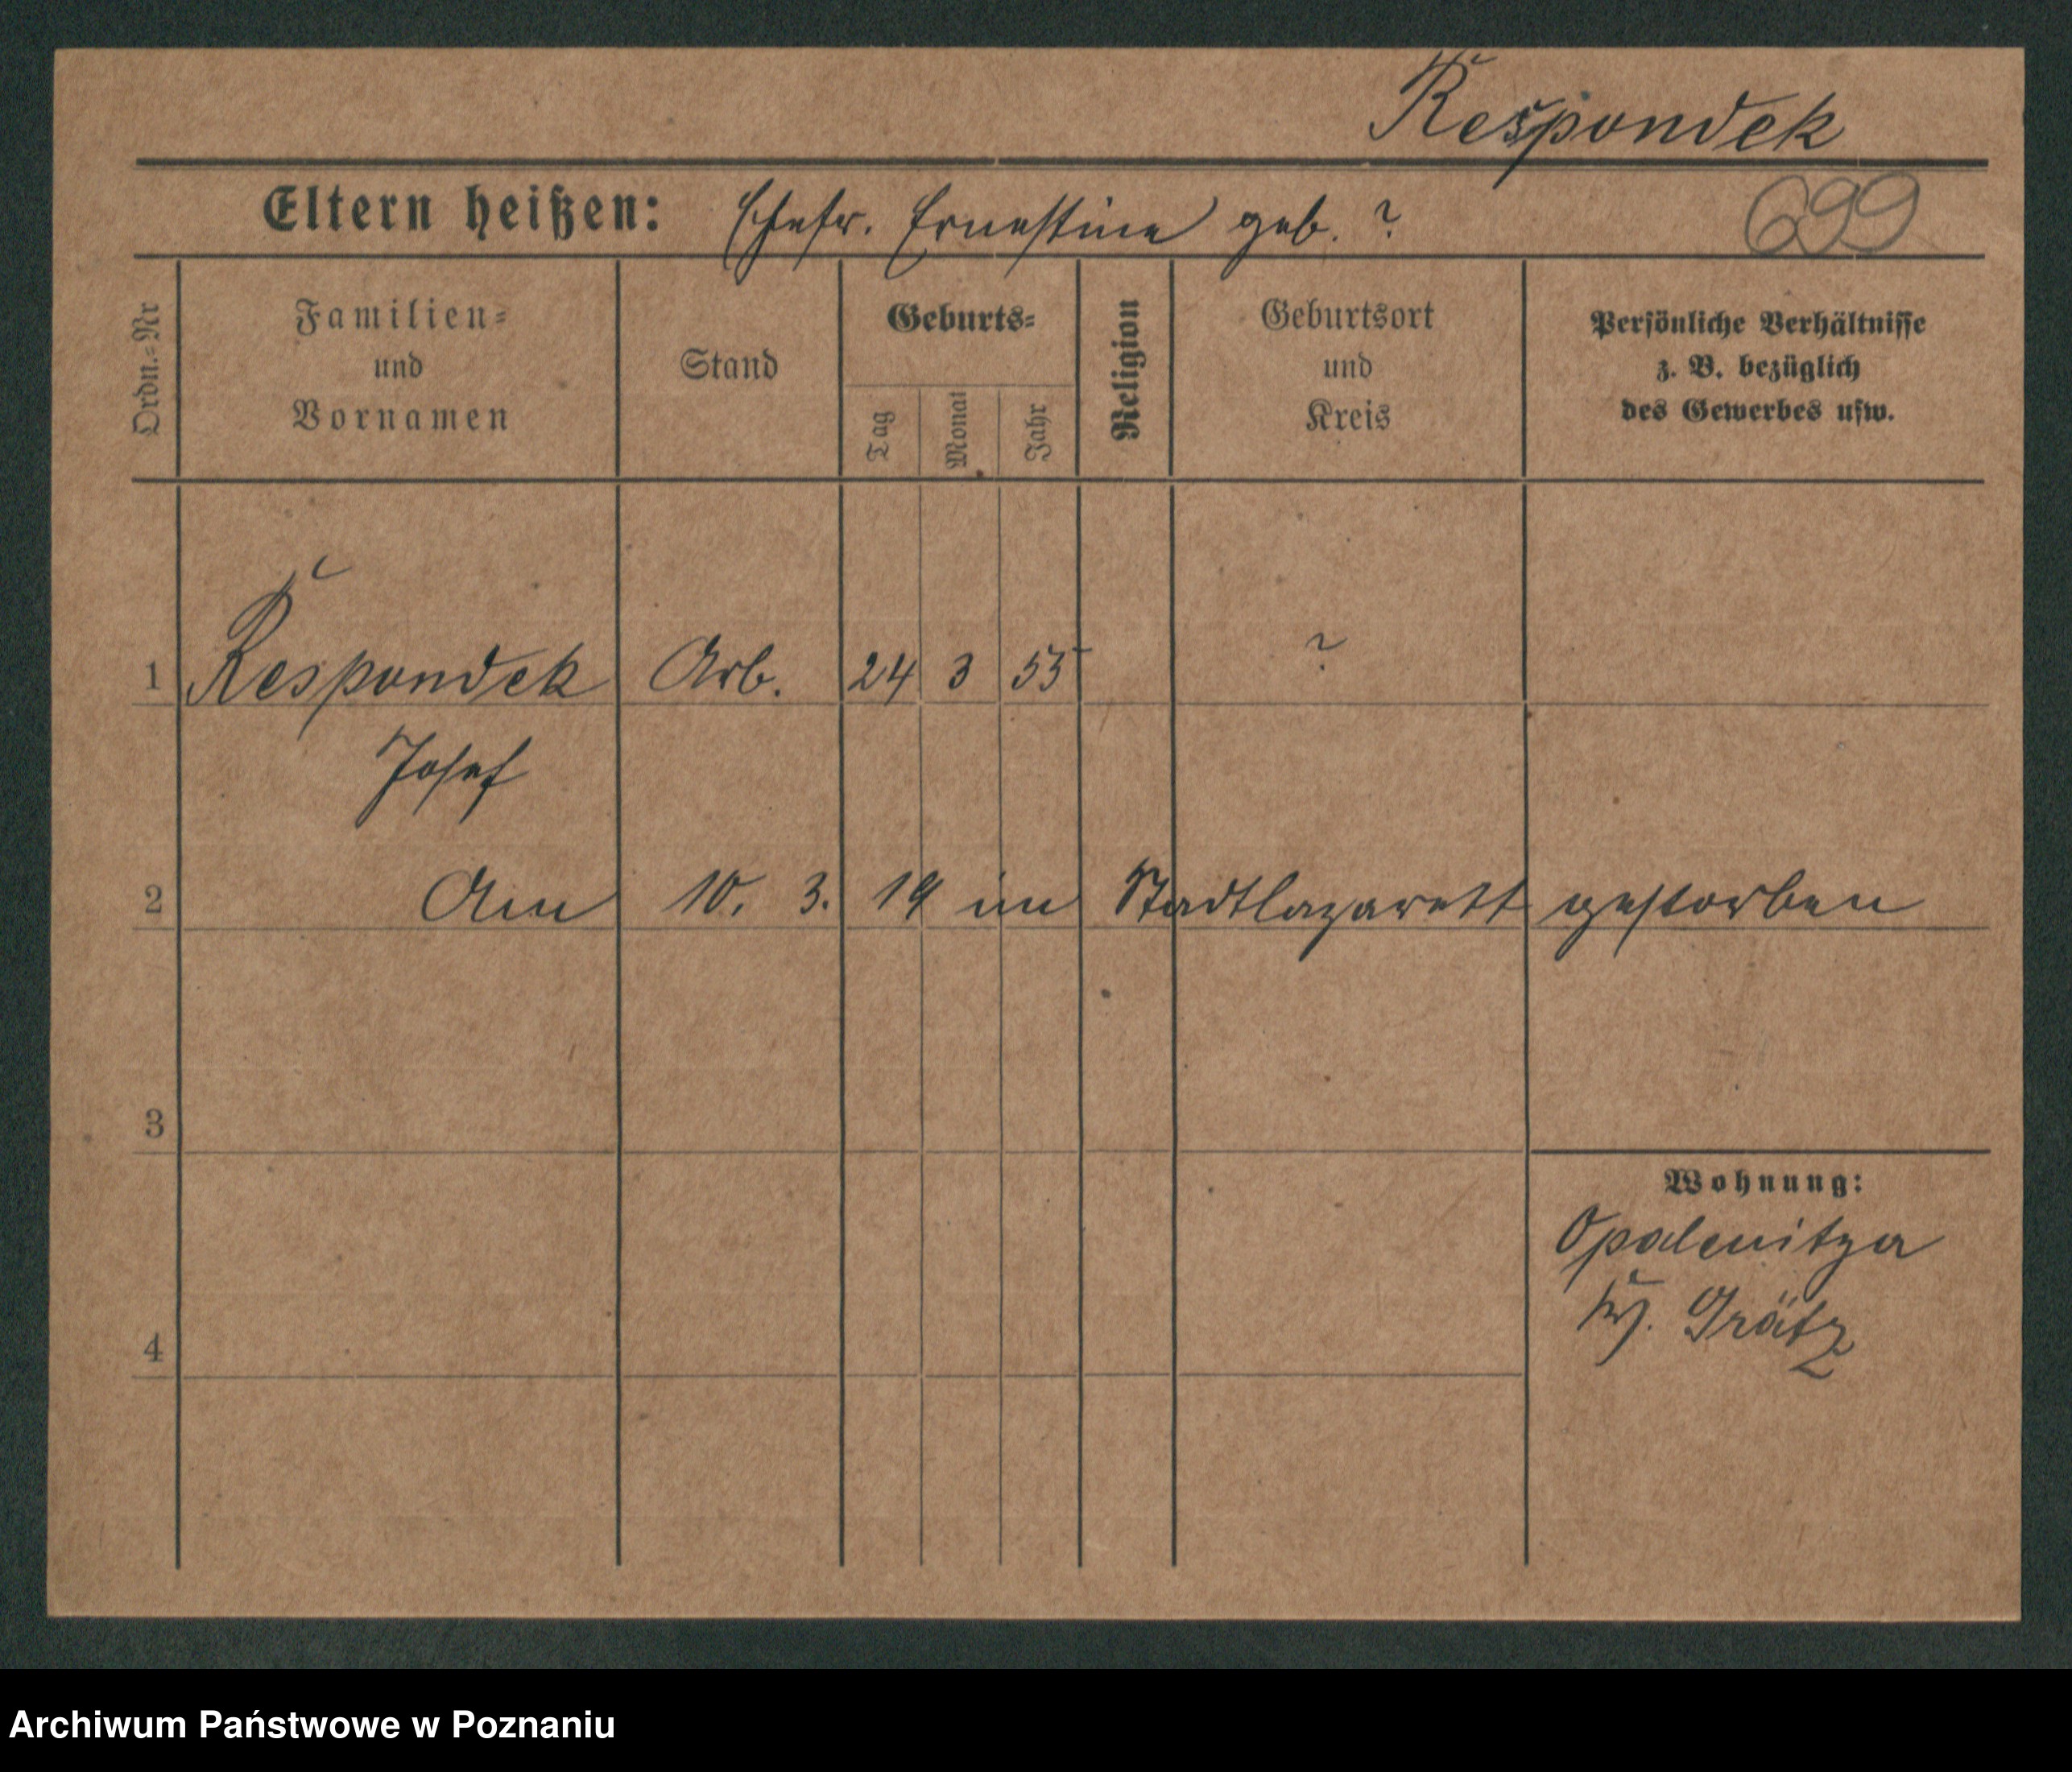 Respondek
Eltern heißen: Ehefr. Ernestine geb. ?
699
Ordn.=Nr
Familien=
und
Vornamen
Stand
Geburts=
Tag
Monat
Jahr
Religion
Geburtsort
und
Kreis
Persönliche Verhältnisse
z. B. bezüglich
des Gewerbes usw.
1 Respondek Arb. 24 3 55 ?
Josef
2 Am 10. 3. 19 im Stadtlazarett gestorben
3
Wohnung:
Opalenitza
Kr. Grätz
4
Archiwum Państwowe w Poznaniu